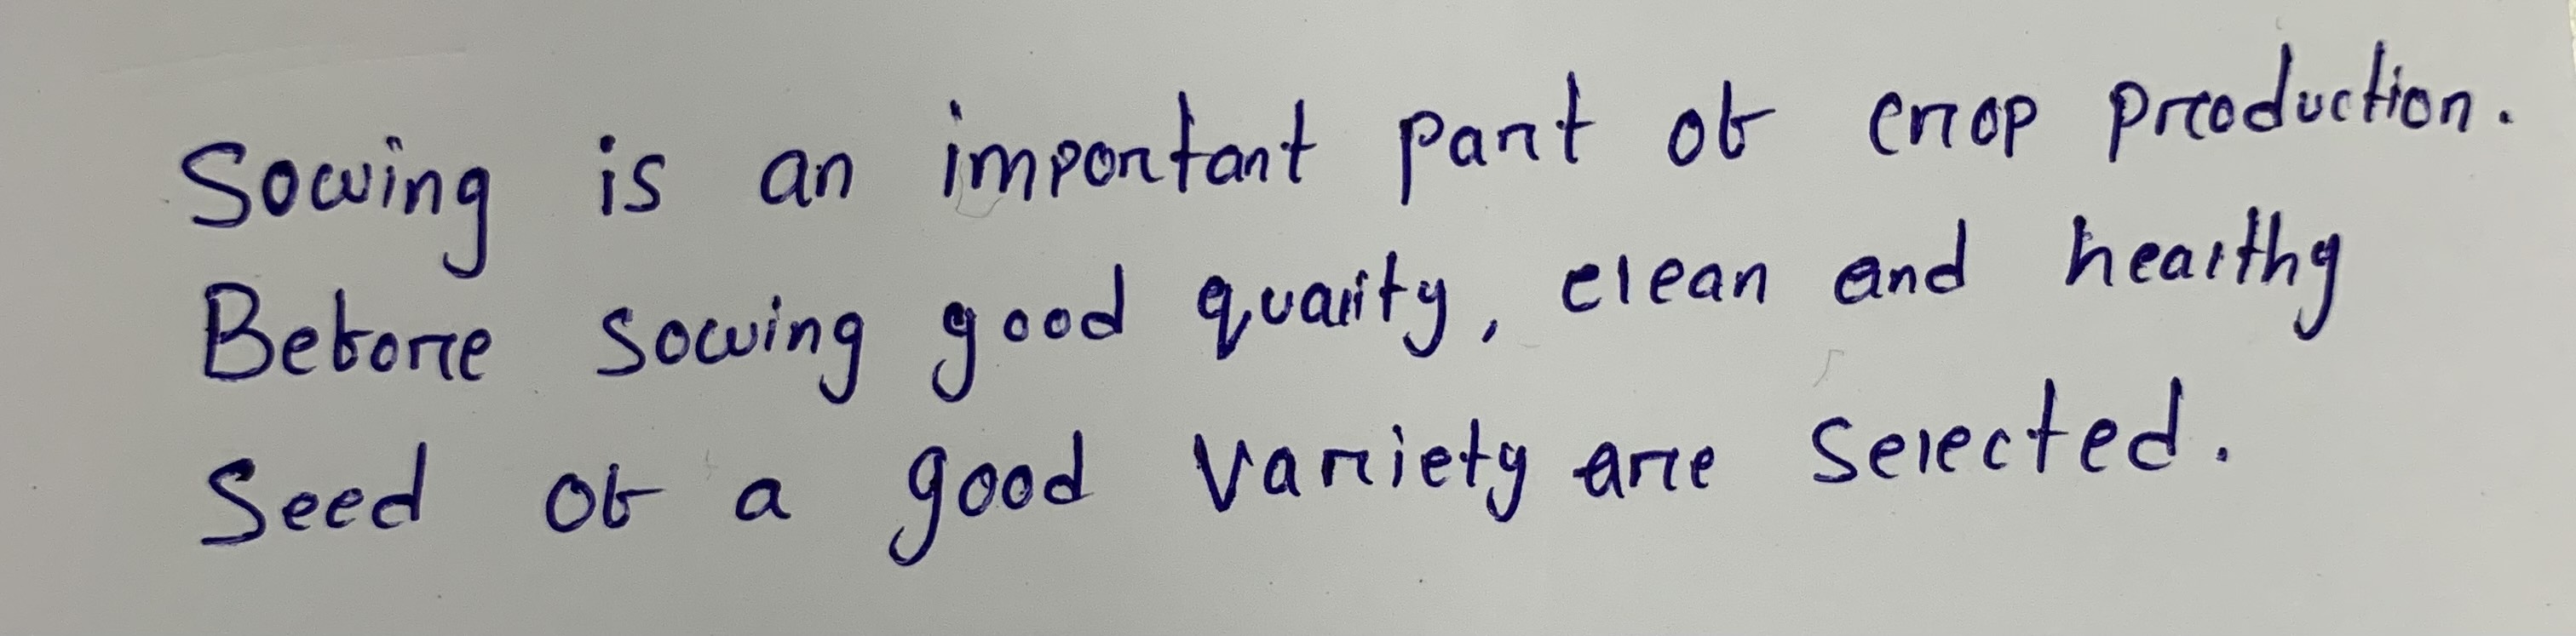 Sowing is an important part of crop production.
Before sowing good quality, clean and healthy
Seed of a good variety are selected.